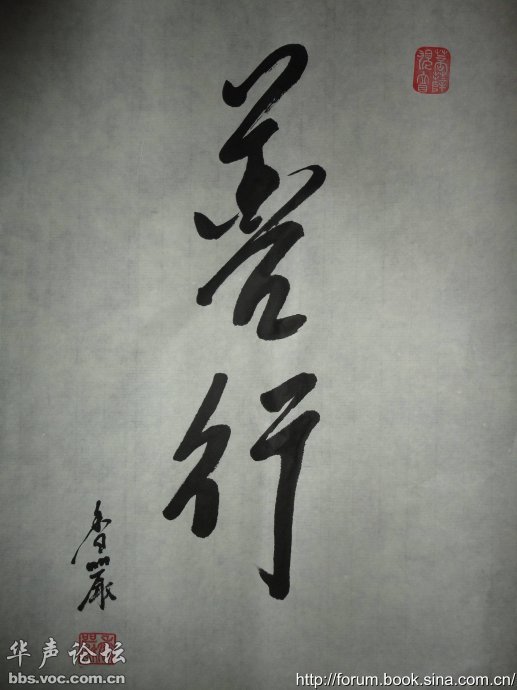 善行
香嚴
华声论坛
bbs.voc.com.cn
http://forum.book.sina.com.cn